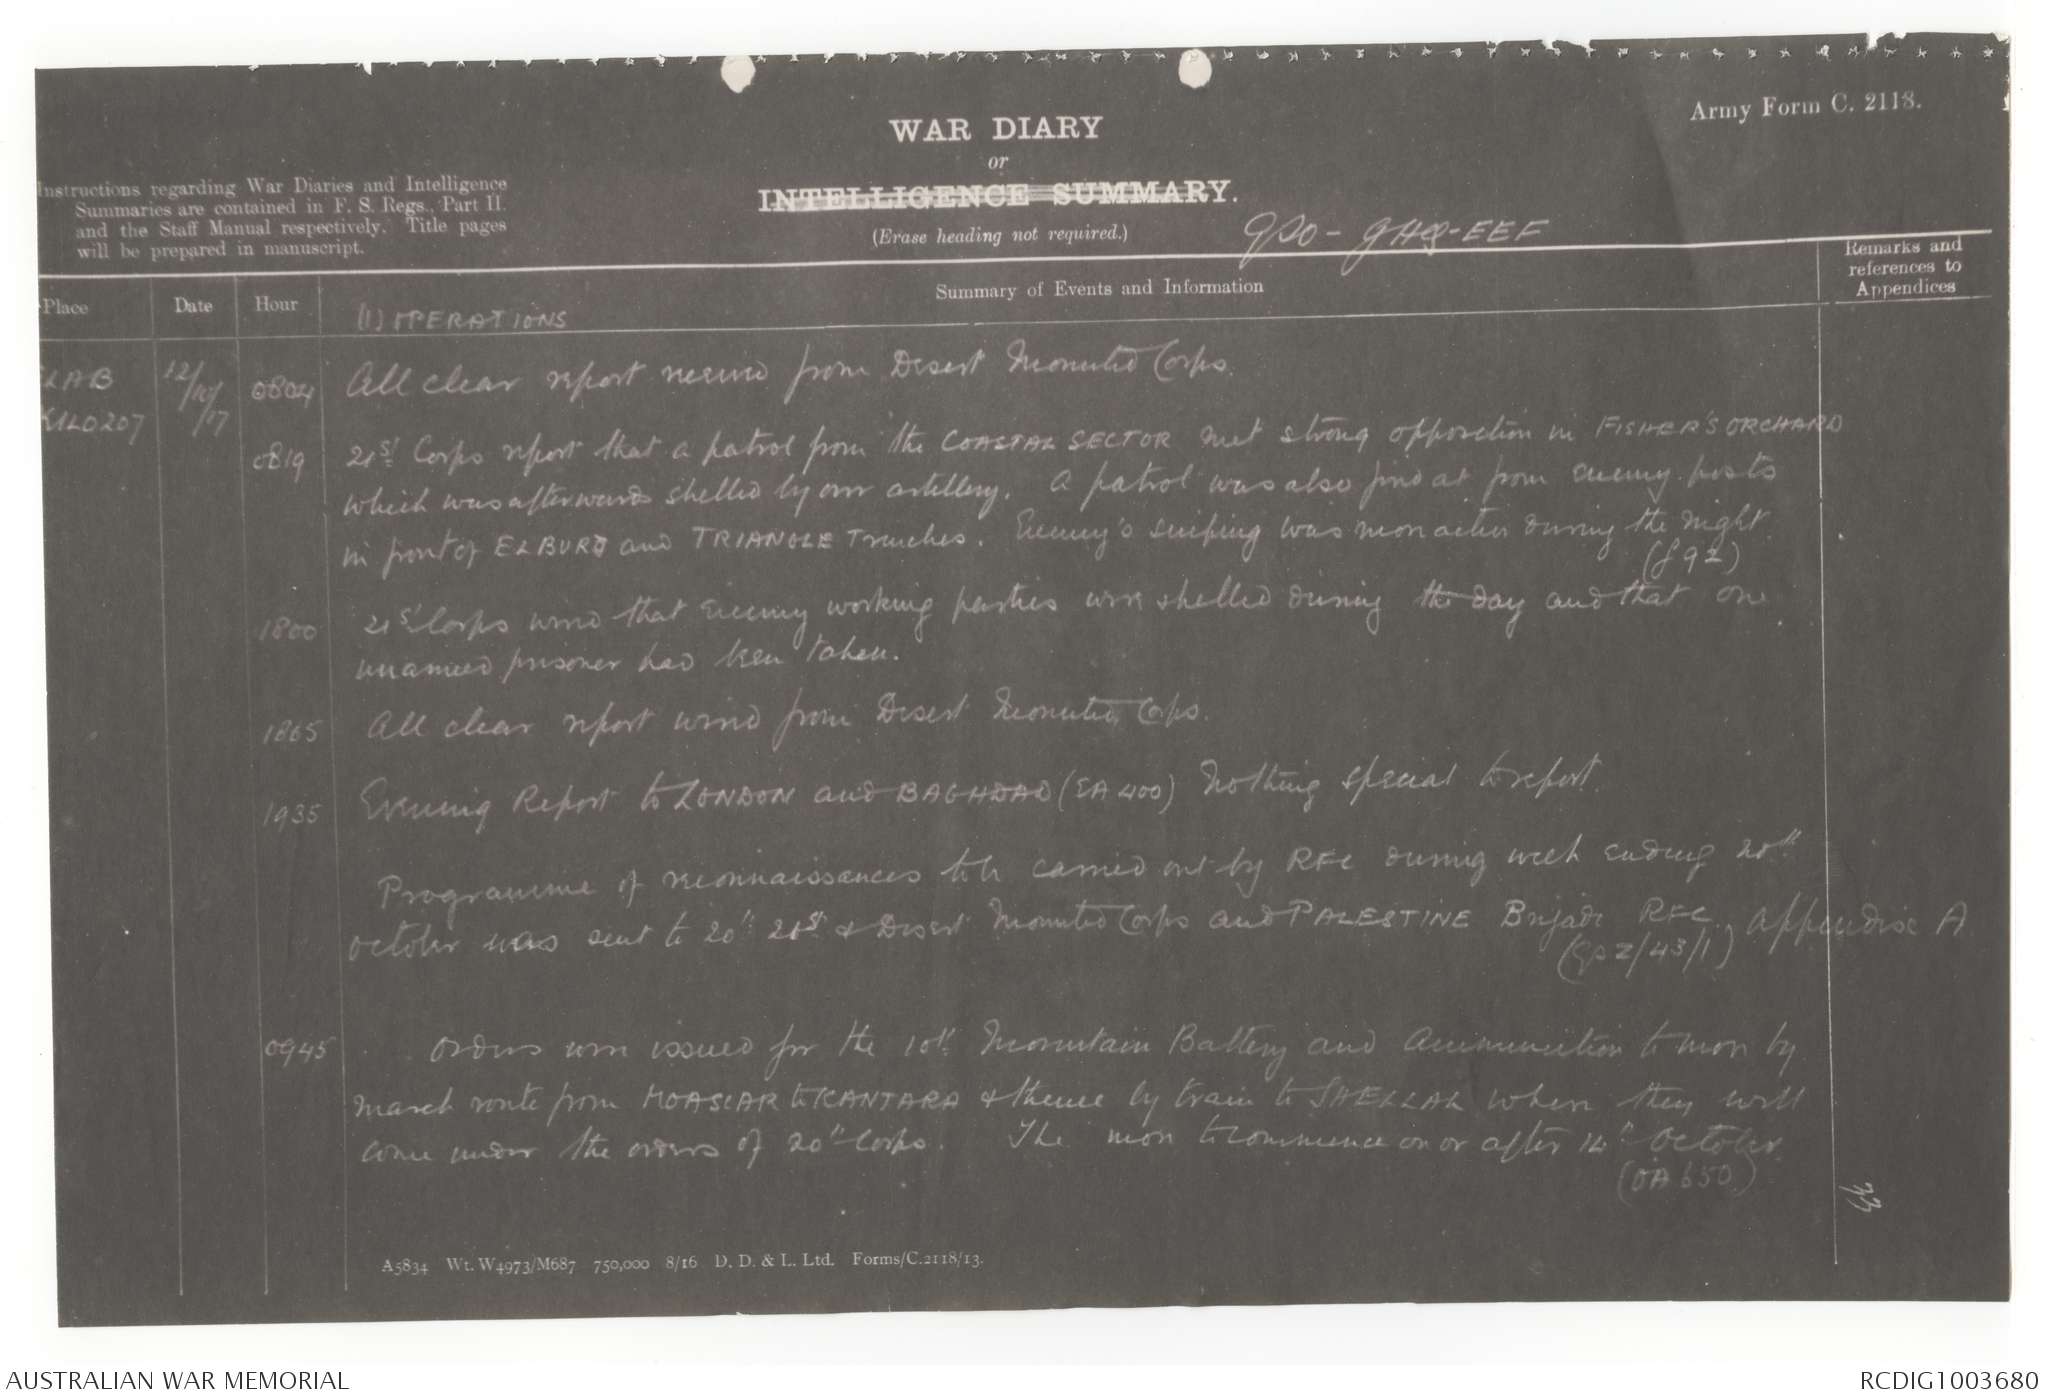 Army Form C. 2118.
WAR DIARY
or
INTELLIGENCE SUMMARY.
(Erase heading not required.)
Instructions regarding War Diaries and Intelligence
Summaries are contained in F. S. Regs., Part II
and the Staff Manual respectively. Title pages
will be prepared in manuscript.
GSO - GHQ - EEF
Place
Date
Hour
Summary of Events and Information
Remarks and
references to
Appendices
(1) OPERATIONS
ELAB
KILO 207
12/10/17
0804 All clear report received from Desert Mounted Corps.
0819 21st Corps report that a patrol from the COASTAL SECTOR met strong opposition in FISHER'S ORCHARD
which was afterwards shelled by our artillery. A patrol was also fired at from enemy posts
in front of EL BURJ and TRIANGLE Trenches. Enemy's sniping was more active during the night.
1800 21st Corps wired that enemy working parties were shelled during the day and that one
unarmed prisoner had been taken.
All clear report wired from Desert Mounted Corps.
1935 Evening Report to LONDON and BAGHDAD (EA 400) Nothing special to report.
Programme of reconnaissances to be carried out by RFC during week ending 20th
October was sent to 20th 21st & Desert Mounted Corps and PALESTINE Brigade RFC. Appendix A
0945 Orders were issued for the 10th Mountain Battery and Ammunition to move by
march route from MOASCAR to KANTARA & thence by train to SHELLAL where they will
come under the orders of 20th Corps. The move to commence on or after 14th October.
(OA 650)
A5834 Wt. W4973/M687 750,000 8/16 D. D. & L. Ltd. Forms/C.2118/13.
AUSTRALIAN WAR MEMORIAL
RCDIG1003680